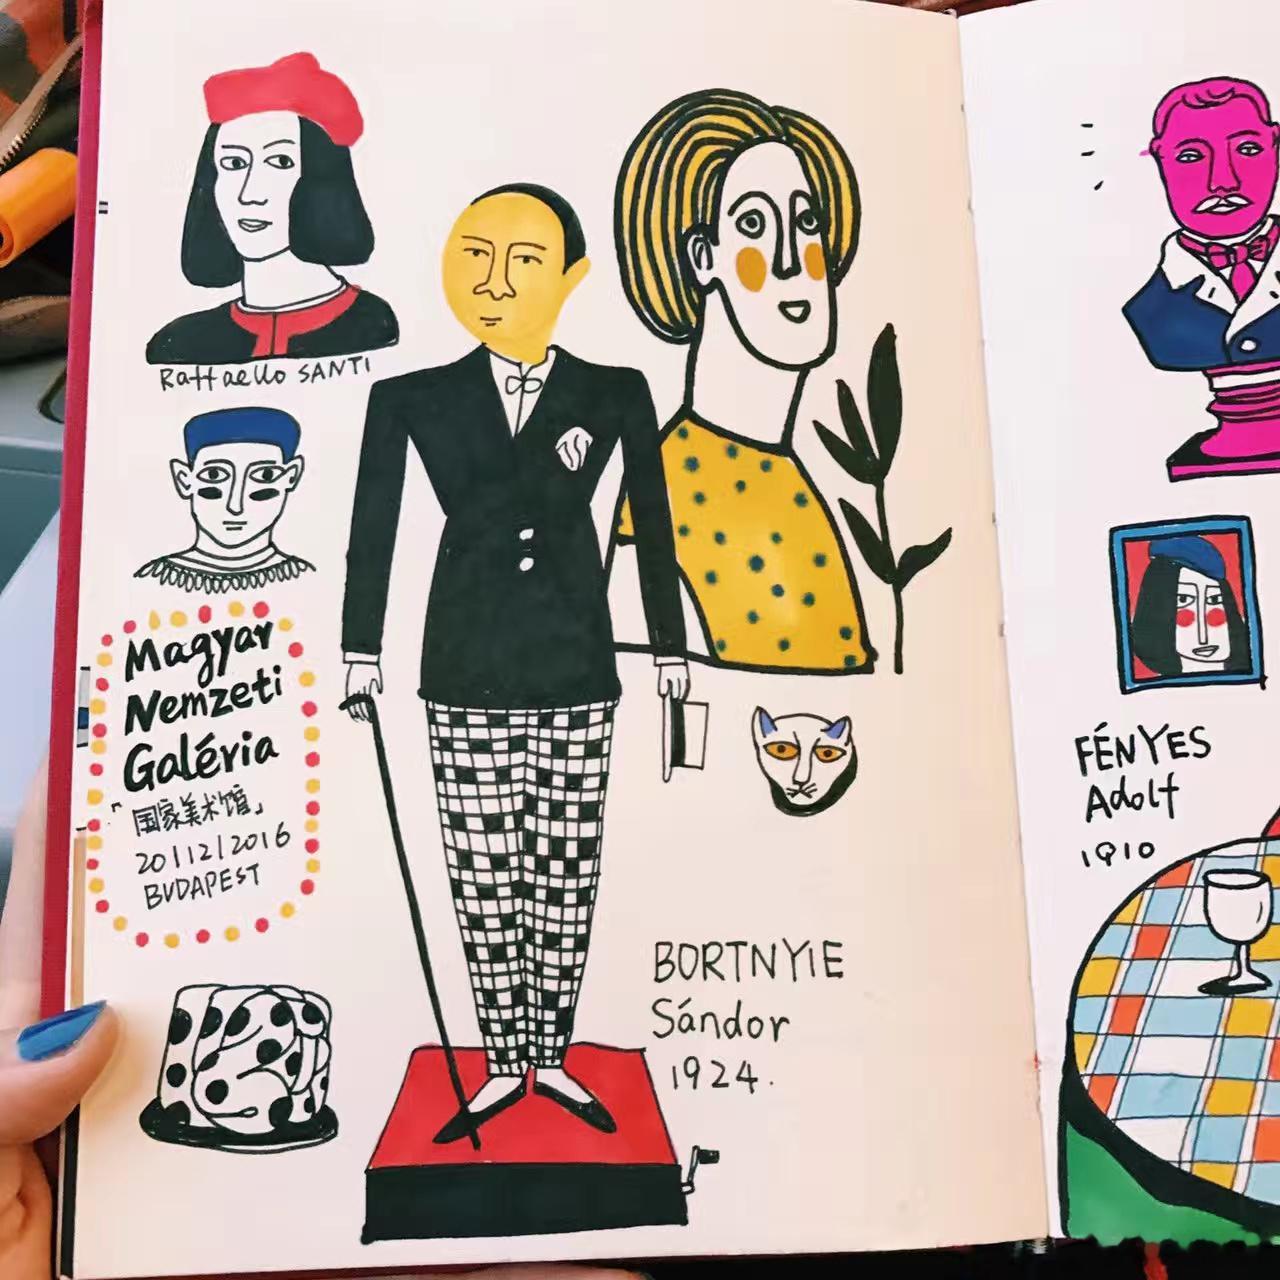 Raffaello SANTI
Magyar
Nemzeti
Galéria
「国家美术馆」
20/12/2016
BUDAPEST
BORTNYIE
Sándor
1924.
FÉNYES
Adolf
1910